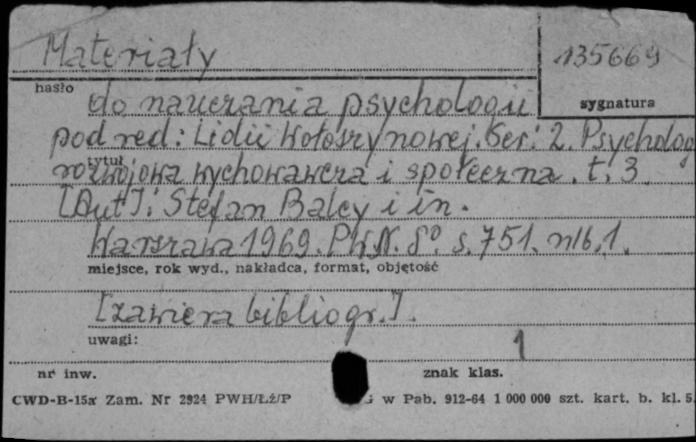 Materiały
135669
hasło
sygnatura
do nauczania psychologii
pod red: Lidii Wołoszynowej. Ser: 2. Psycholog
tytuł
rozwojowa wychowawcza i społeczna. t. 3
[Aut]: Stefan Baley i in.
Warszawa 1969. PWN. 8° s. 751. nlb. 1.
miejsce, rok wyd., nakładca, format, objętość
[zawiera bibliogr.].
uwagi:
1
nr inw.
znak klas.
CWD-B-15a Zam. Nr 2924 PWH/Łż/P G w Pab. 912-64 1 000 000 szt. kart. b. kl. 5.